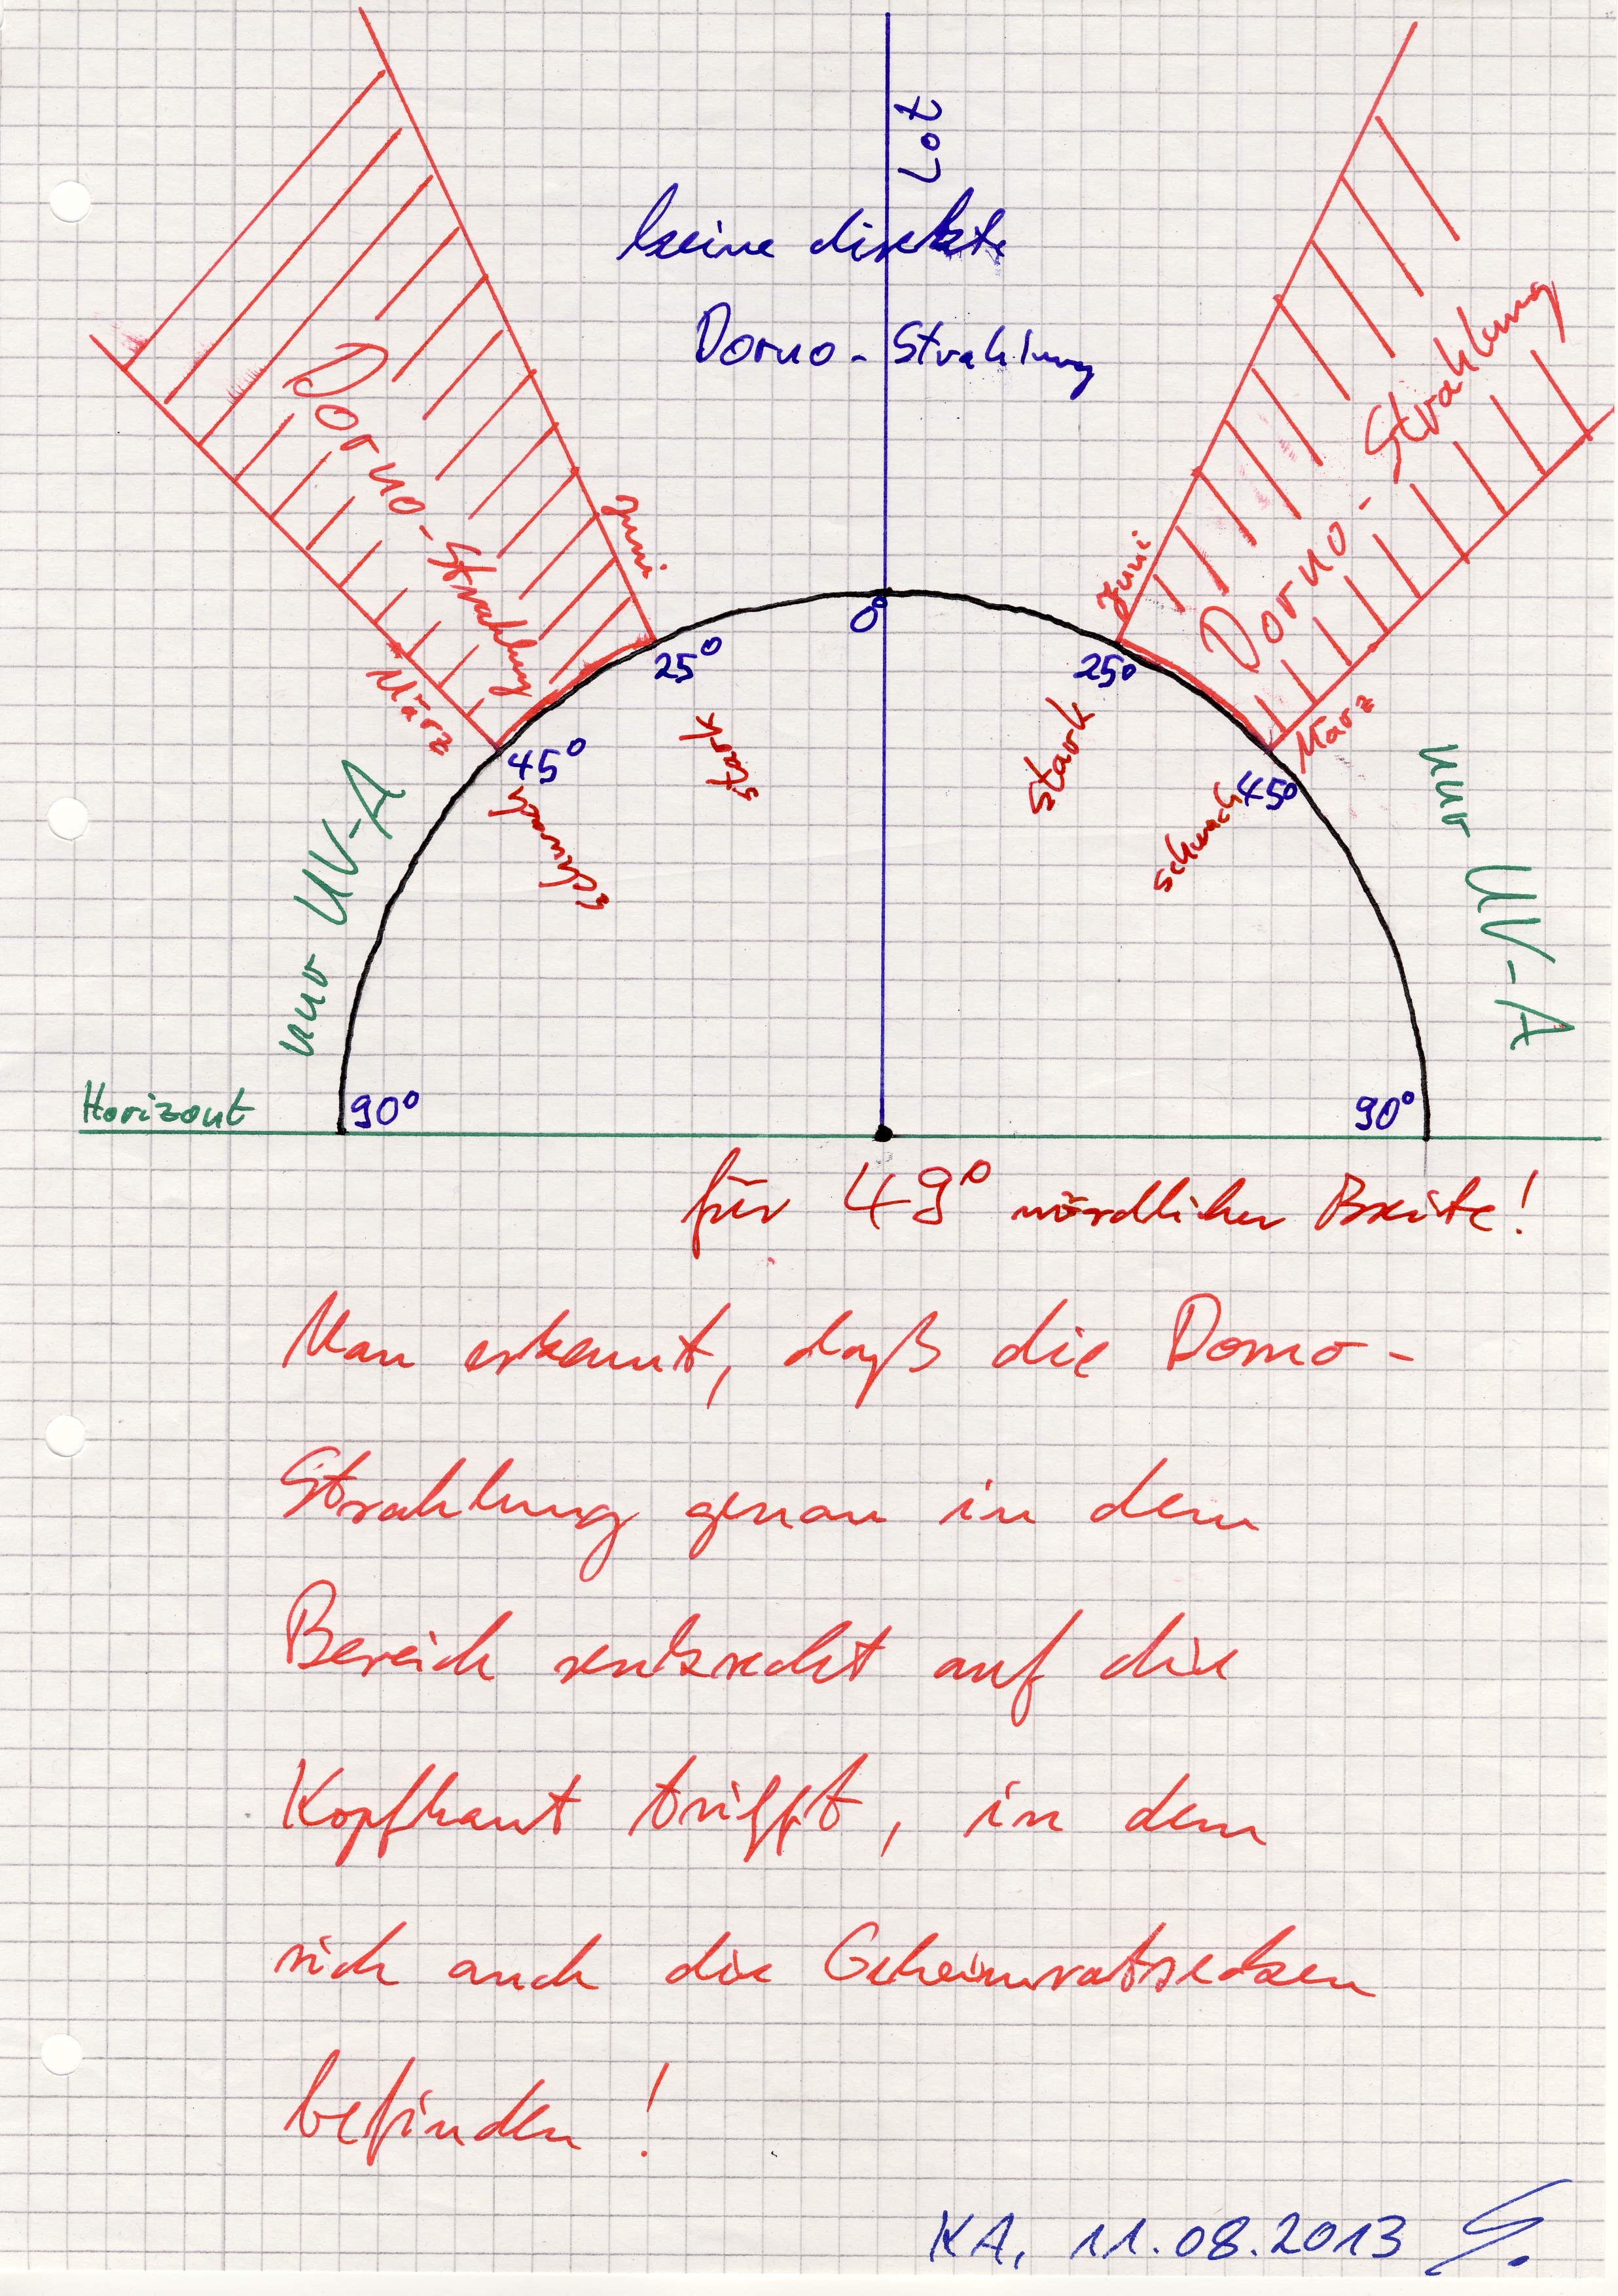 Lot
keine direkte
Dorno-Strahlung
Dorno-Strahlung
Dorno-Strahlung
Juni
Juni
März
März
0°
25°
25°
45°
45°
stark
stark
schwach
schwach
nur UV-A
nur UV-A
Horizont
90°
90°
für 49° nördlicher Breite!
Man erkennt, daß die Dorno-
Strahlung genau in dem
Bereich senkrecht auf die
Kopfhaut trifft, in dem
sich auch die Geheimratsecken
befinden!
KA, 11.08.2013